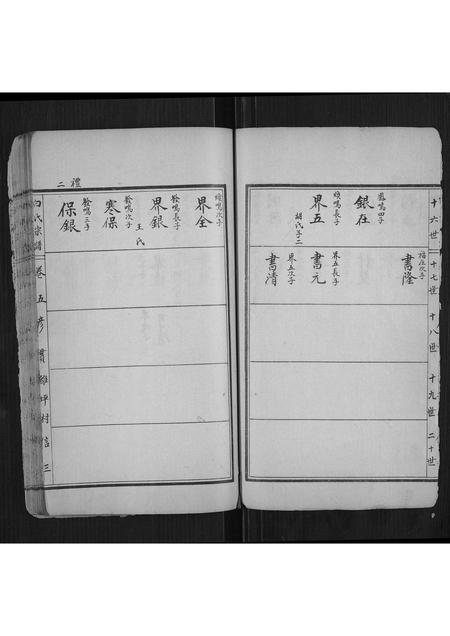 十六世
十七世
十八世
十九世
二十世
福在次子
書隆
鳴四子
銀在
順鳴長子
界五
胡氏子二
界五長子
書元
界五次子
書清
順鳴次子
界全
鈴鳴長子
界銀
王氏
鈴鳴次子
寒保
鈴鳴三子
保銀
禮二
白氏宗譜
卷五彦
坪村信三